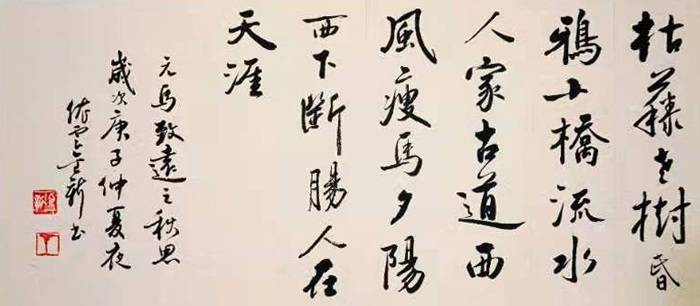 枯藤老樹昏
鴉小橋流水
人家古道西
風瘦馬夕陽
西下斷腸人在
天涯
元馬致遠之秋思
歲次庚子仲夏夜
书